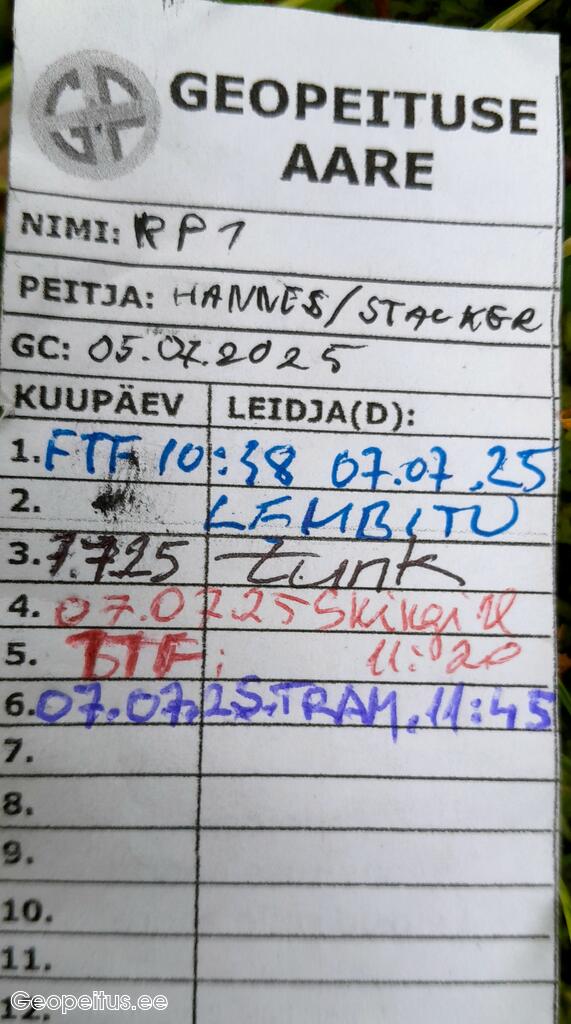 GEOPEITUSE
AARE
NIMI: RP1
PEITJA: HANNES/STACKER
GC: 05.07.2025
KUUPÄEV LEIDJA(D):
1. FTF 10:38 07.07.25
2. LEMBITU
3. 7.7.25 tunk
4. 07.07.25
5. TTF: 11:20
6. 07.07.25. TRAM. 11:45
7.
8.
9.
10.
11.
12.
Geopeitus.ee